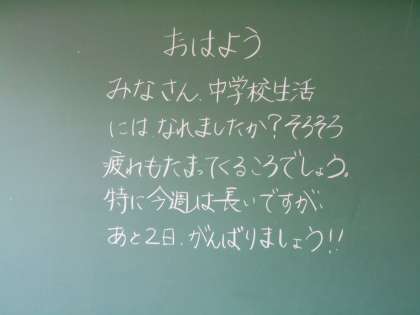 おはよう
みなさん、中学校生活
にはなれましたか?そろそろ
疲れもたまってくるころでしょう。
特に今週は長いですが、
あと2日、がんばりましょう!!